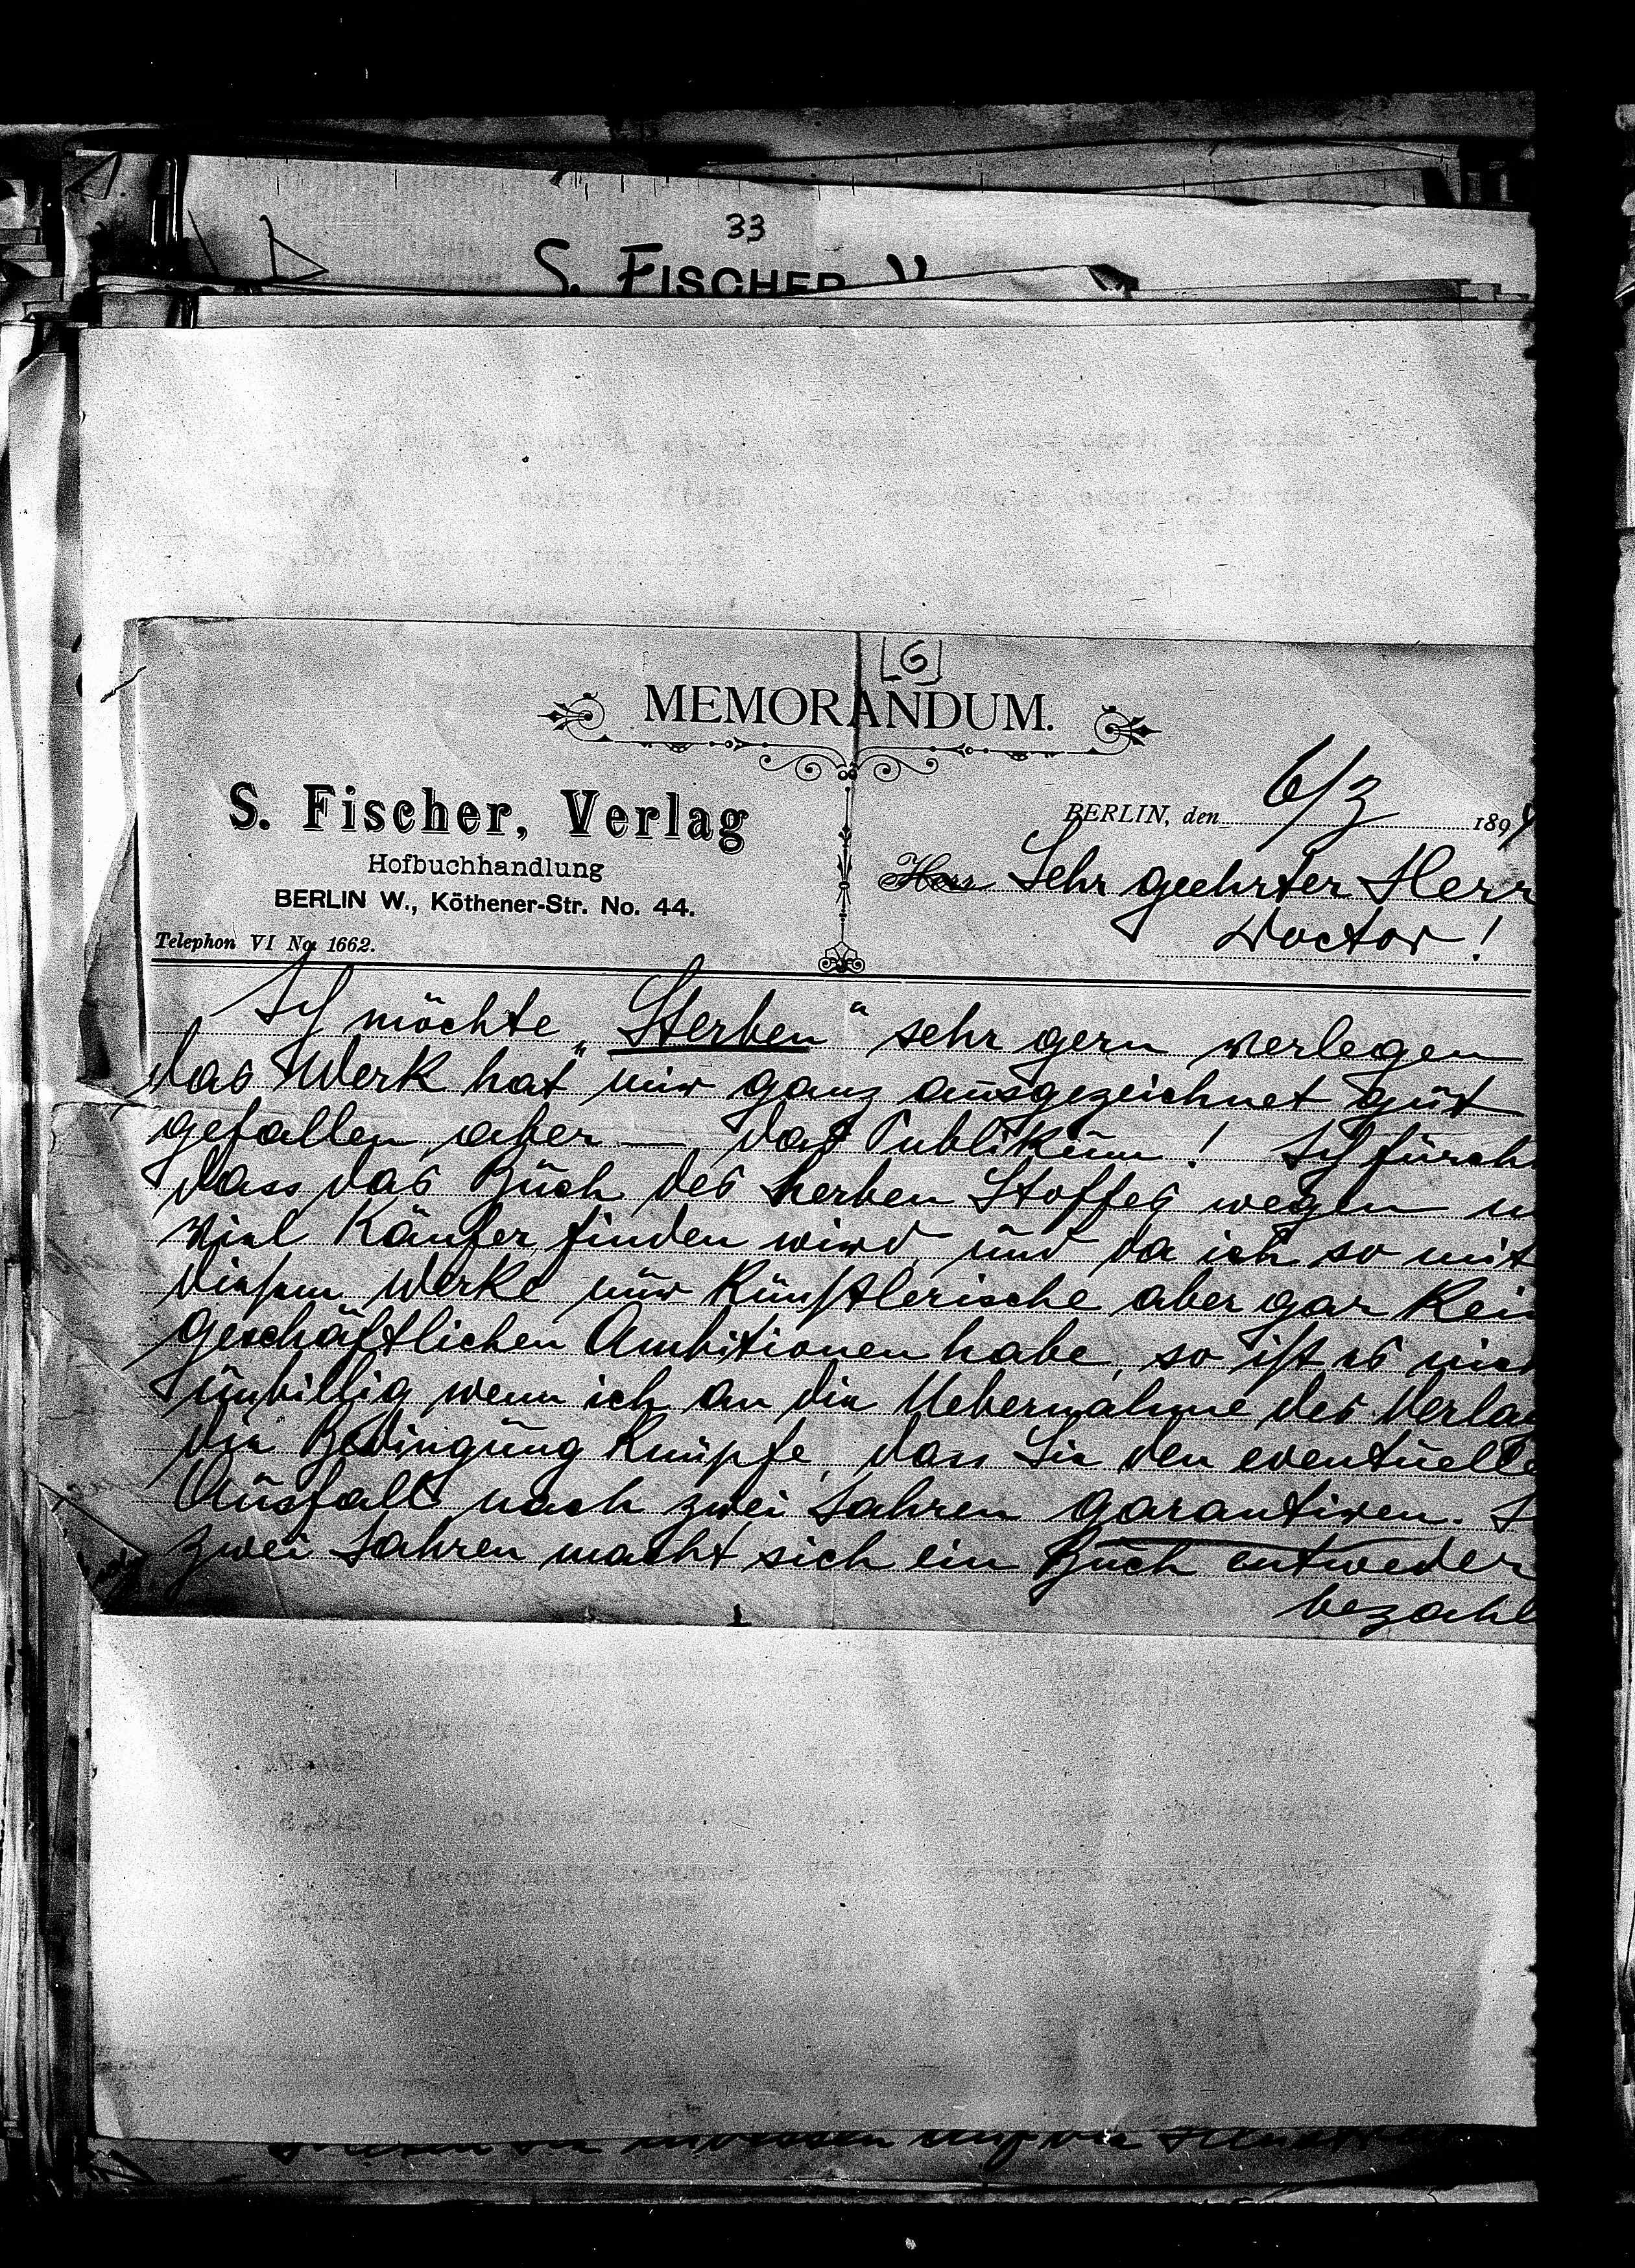 33
S. FISCHER
[6]
MEMORANDUM.
S. Fischer, Verlag
Hofbuchhandlung
BERLIN W., Köthener-Str. No. 44.
Telephon VI No. 1662.
BERLIN, den 6/3 1894
Herr Sehr geehrter Herr
Doctor!
Ich möchte „Sterben“ sehr gern verlegen
das Werk hat mir ganz ausgezeichnet gut
gefallen aber — das Publikum! Ich fürch
dass das Buch des herben Stoffes wegen n
viel Käufer finden wird und da ich so mit
diesem Werke nur künstlerische aber gar kein
geschäftlichen Ambitionen habe, so ist es nich
unbillig wenn ich an die Uebernahme des Verlag
die Bedingung knüpfe, dass Sie den eventuelle
Ausfall nach zwei Jahren garantiren. I
zwei Jahren macht sich ein Buch entweder
bezahl